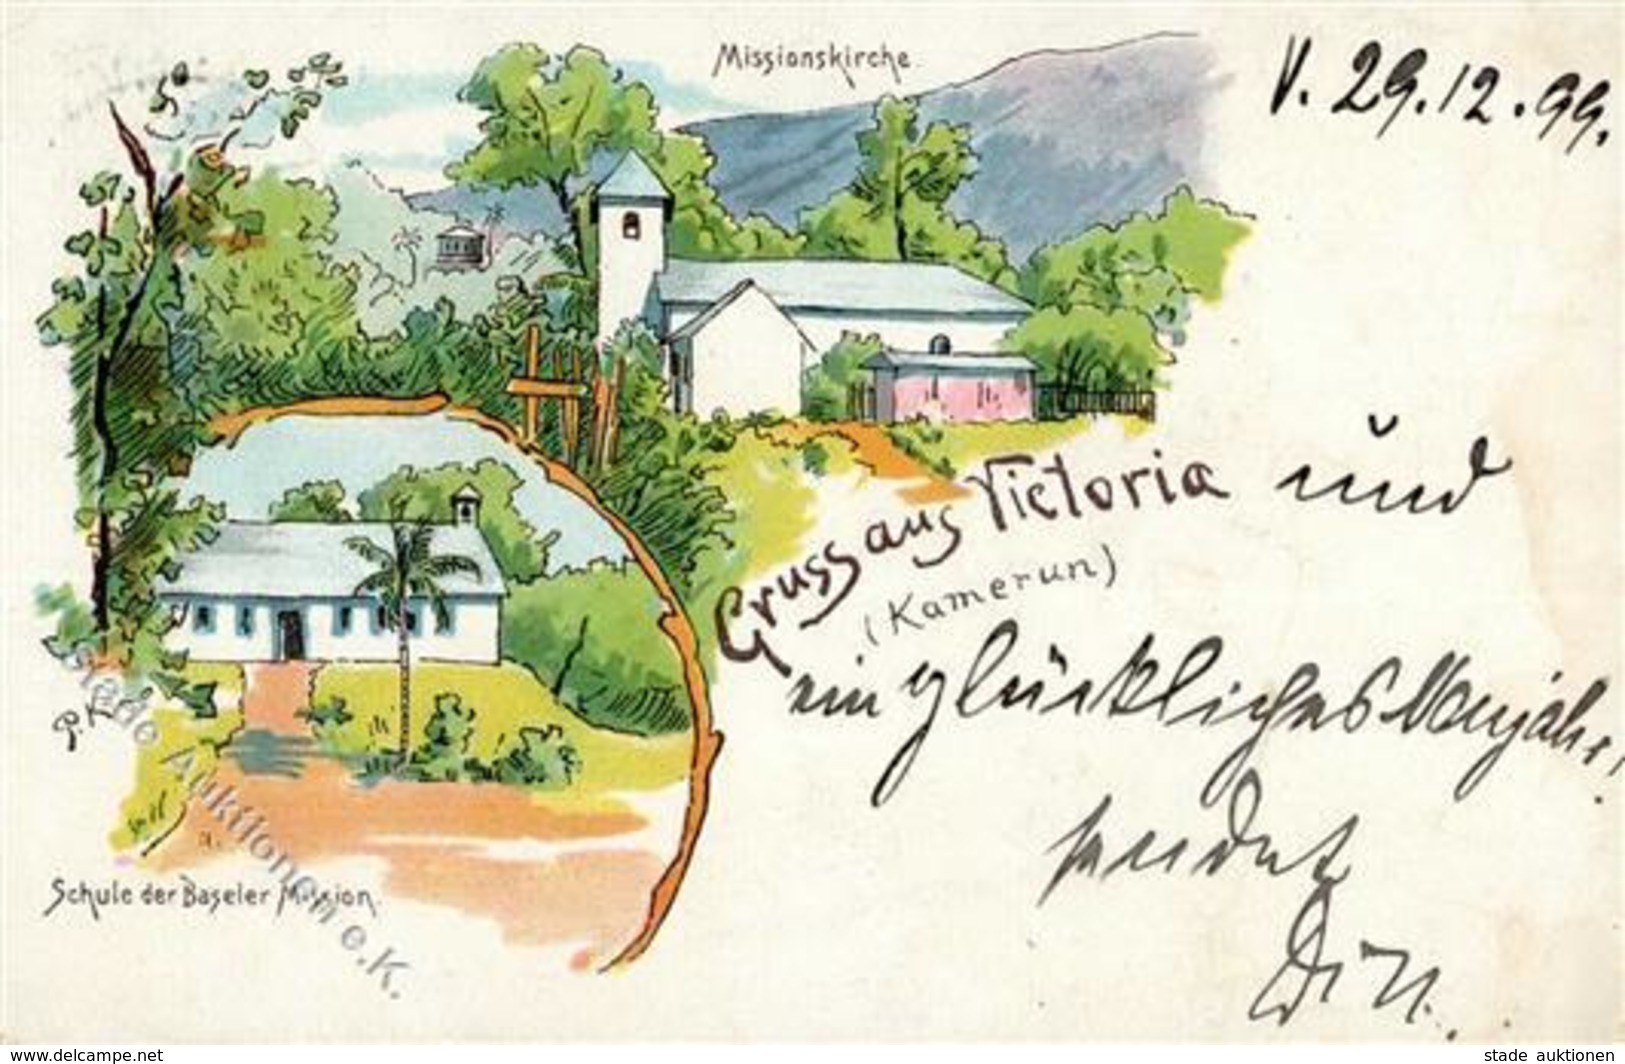 Missionskirche.
V. 29.12.99.
Gruss aus Victoria und
(Kamerun)
ein glückliches Neujahr!
sendet
P.K.
Schule der Baseler Mission.
Stade Auktionen e.K.
www.delcampe.net
stade auktionen